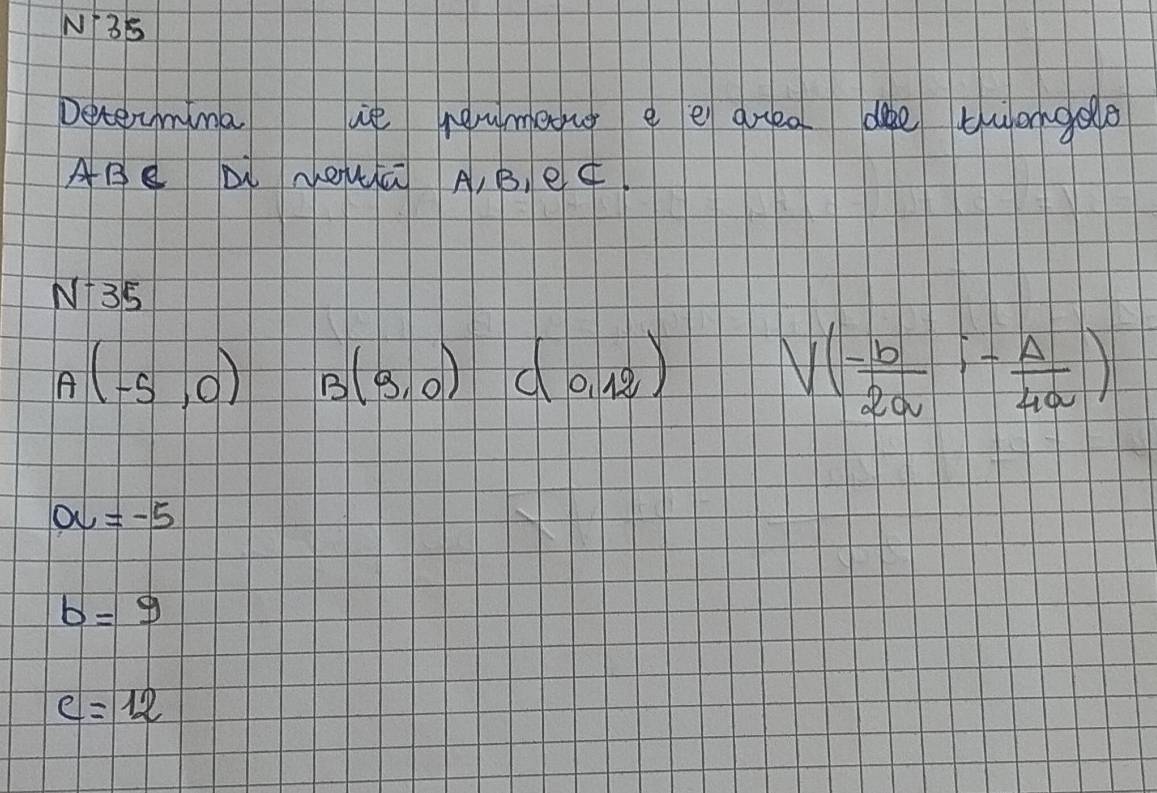 N° 35
Determina il perimetro e l' area del triangolo
ABC Di vertici A, B, e C.
N° 35
A (-5 , 0) B (9, 0) C( 0, 12 ) V( -b/2a ; - Δ/4a )
a = -5
b = 9
c = 12